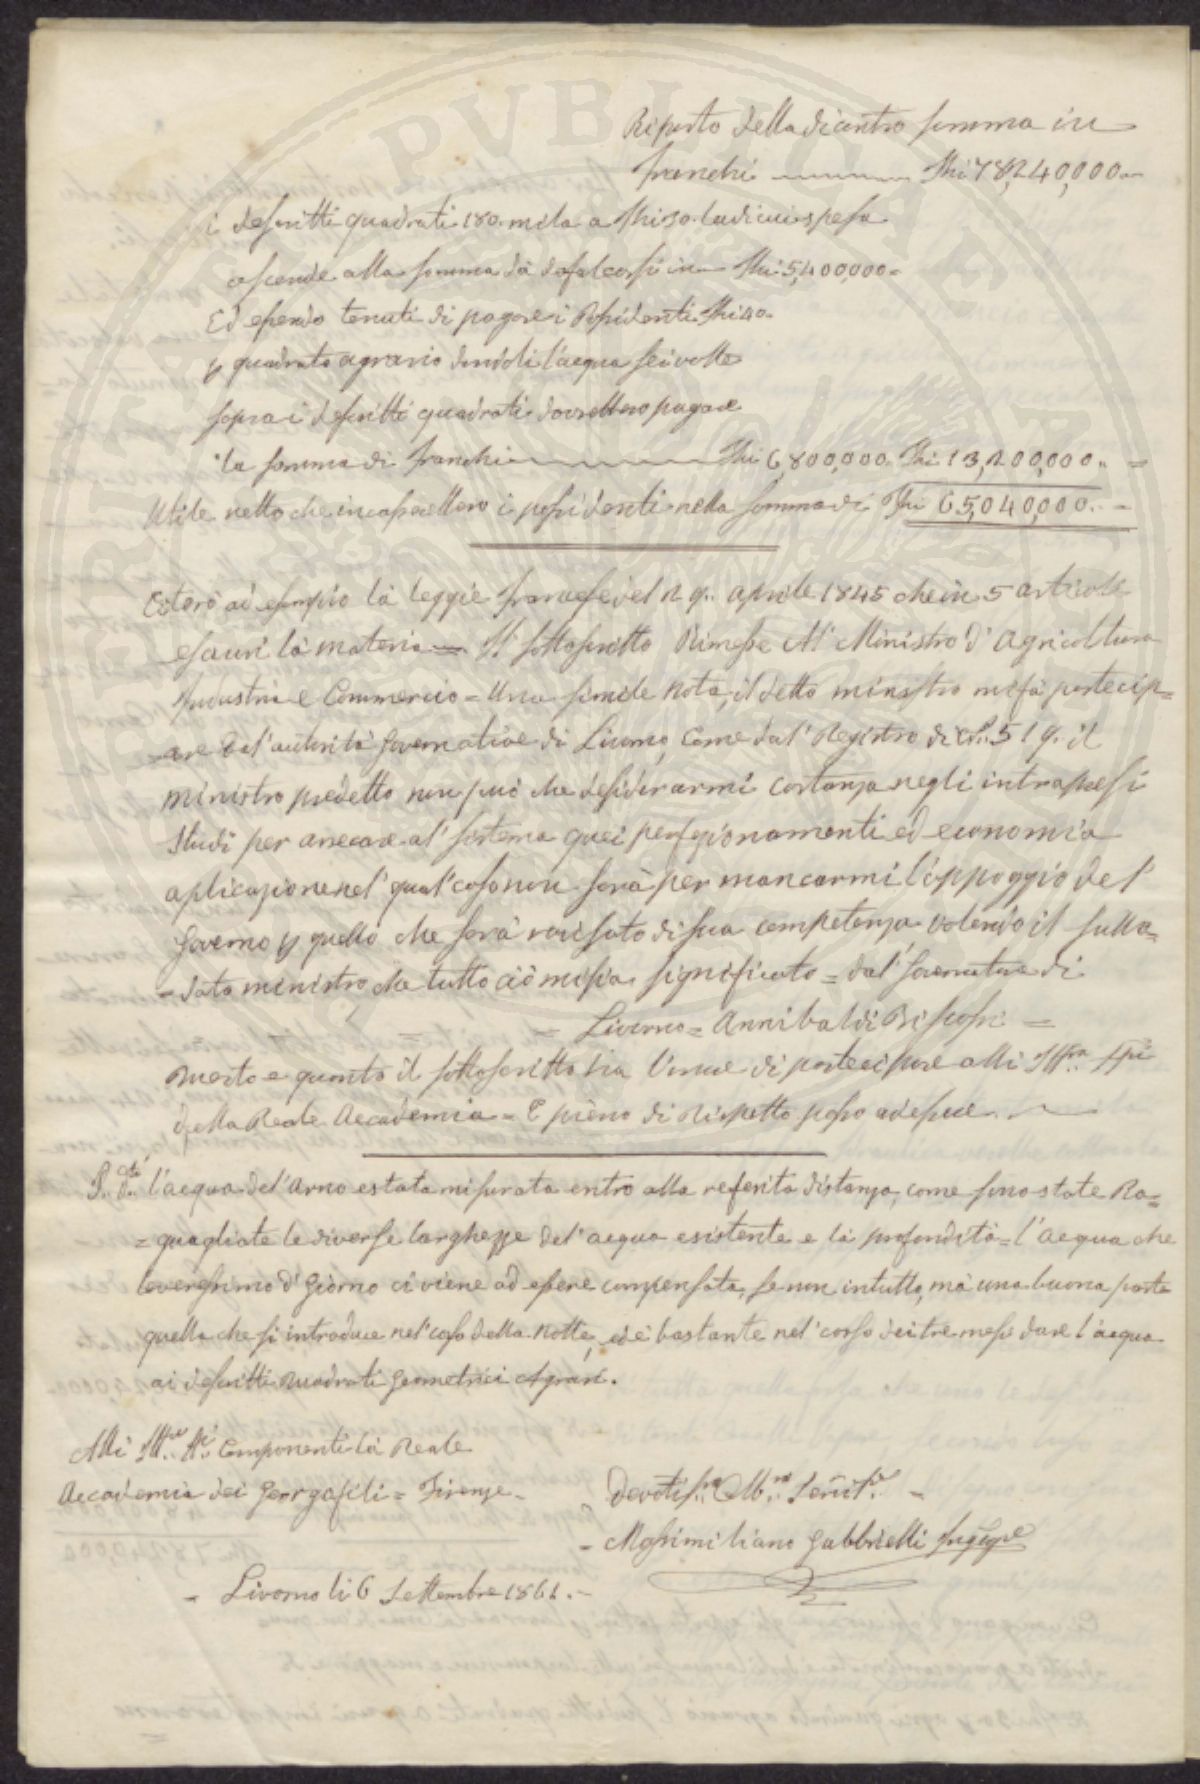 Riporto della dicontro somma in
franchi Fhi 78,240,000
i descritti quadrati 180. mila a Fhi 30 la di cui spesa
ascende alla somma da dafalcarsi in Fhi 5,400,000 =
Ed essendo tenuti di pagare i Possidenti Fhi 40
p quadrato agrario dandoli l'acqua sei volte
sopra i descritti quadrati dovrebbero pagare
la somma di franchi Fhi 6,800,000. Fhi 13,200,000.. =
Utile netto che incasserebbero i possidenti nella somma di Fhi 65,040,000.. =
Citerò ad esempio la leggie francese del 29.. aprile 1845 che in 5 articoli
esaurì la materia = Il sottoscritto Rimesse Al' Ministro d' agricoltura
Industria e Commercio = Una simile nota, il detto ministro mi fà partecip=
are dal' autorità Governative di Livorno, Come dal' Registro di N. 519. il
ministro predetto non può che desiderarmi costanza negli intrapresi
studi per arrecare al' sistema quei perfezionamenti ed economia
aplicazione nel' qual' caso non sarà per mancarmi l'appoggio del'
Governo p quello che sarà ravisato di sua competenza volendo il sulla=
= dato ministro, che tutto ciò mi sia significato = dal' Governatore di
= Livorno = Annibaldi Biscossi =
Questo e quanto il sottoscritto ha l'onore di partecipare alli
della Reale Accademia = E pieno di Rispetto passo ad essere
l'acqua del' Arno e stata misurata entro alla referita distanza, come sono state Ra=
= guagliate le diverse larghezze del' acqua esistente e la profondità = l'acqua che
leveressimo d' Giorno ci viene ad essere compensata, se non intutto, mà una buona parte
quella che si introduce nel' caso della notte, ed è bastante nel' corso dei tre mesi dare l'acqua
ai descritti Quadrati Geometrici Agrari.
Alli Componenti la Reale
Accademia dei Georgofili = Firenze =
Devotiss.mo Obb.mo Servit.e =
= Massimiliano Gabbrielli Ingegre
= Livorno li 6 Settembre 1861. =